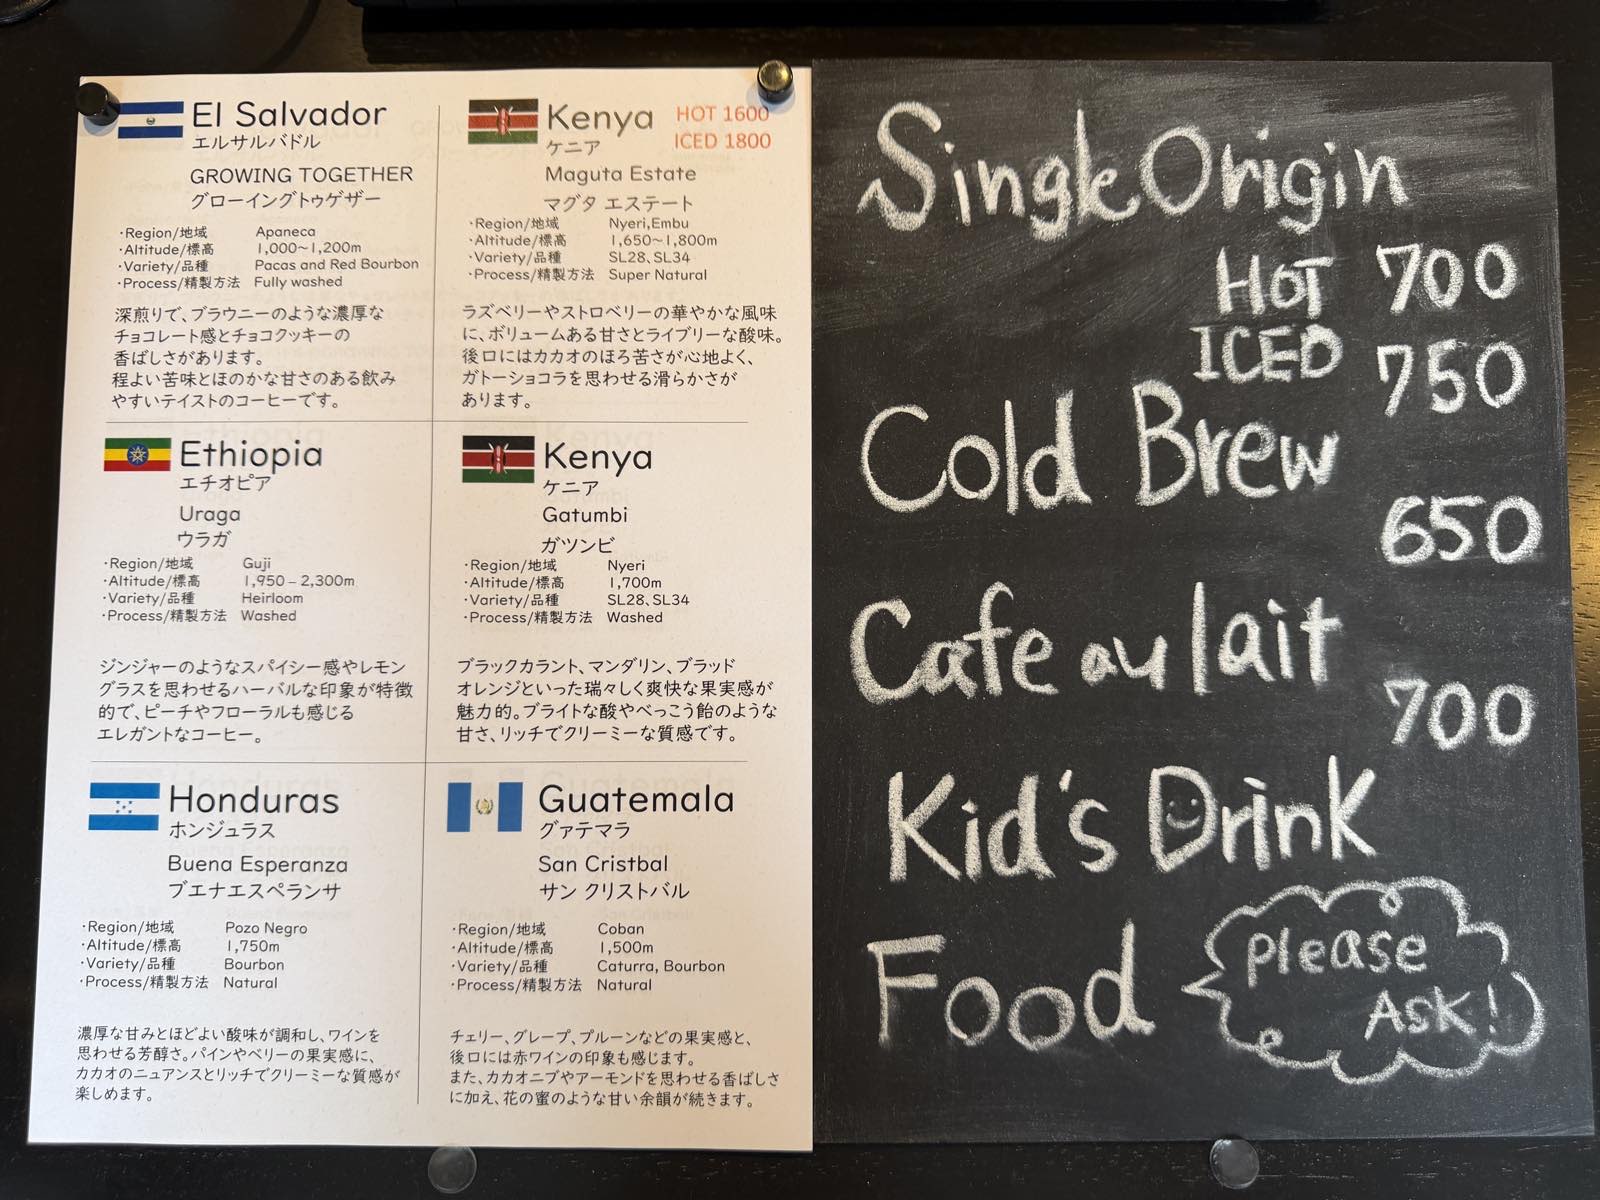 El Salvador
エルサルバドル
GROWING TOGETHER
グローイングトゥゲザー
・Region/地域 Apaneca
・Altitude/標高 1,000~1,200m
・Variety/品種 Pacas and Red Bourbon
・Process/精製方法 Fully washed
深煎りで、ブラウニーのような濃厚な
チョコレート感とチョコクッキーの
香ばしさがあります。
程よい苦味とほのかな甘さのある飲み
やすいテイストのコーヒーです。
Kenya HOT 1600
ケニア ICED 1800
Maguta Estate
マグタ エステート
・Region/地域 Nyeri,Embu
・Altitude/標高 1,650~1,800m
・Variety/品種 SL28、SL34
・Process/精製方法 Super Natural
ラズベリーやストロベリーの華やかな風味
に、ボリュームある甘さとライブリーな酸味。
後口にはカカオのほろ苦さが心地よく、
ガトーショコラを思わせる滑らかさが
あります。
Ethiopia
エチオピア
Uraga
ウラガ
・Region/地域 Guji
・Altitude/標高 1,950 – 2,300m
・Variety/品種 Heirloom
・Process/精製方法 Washed
ジンジャーのようなスパイシー感やレモン
グラスを思わせるハーバルな印象が特徴
的で、ピーチやフローラルも感じる
エレガントなコーヒー。
Kenya
ケニア
Gatumbi
ガツンビ
・Region/地域 Nyeri
・Altitude/標高 1,700m
・Variety/品種 SL28、SL34
・Process/精製方法 Washed
ブラックカラント、マンダリン、ブラッド
オレンジといった瑞々しく爽快な果実感が
魅力的。ブライトな酸やべっこう飴のような
甘さ、リッチでクリーミーな質感です。
Honduras
ホンジュラス
Buena Esperanza
ブエナエスペランサ
・Region/地域 Pozo Negro
・Altitude/標高 1,750m
・Variety/品種 Bourbon
・Process/精製方法 Natural
濃厚な甘みとほどよい酸味が調和し、ワインを
思わせる芳醇さ。パインやベリーの果実感に、
カカオのニュアンスとリッチでクリーミーな質感が
楽しめます。
Guatemala
グァテマラ
San Cristbal
サン クリストバル
・Region/地域 Coban
・Altitude/標高 1,500m
・Variety/品種 Caturra, Bourbon
・Process/精製方法 Natural
チェリー、グレープ、プルーンなどの果実感と、
後口には赤ワインの印象も感じます。
また、カカオニブやアーモンドを思わせる香ばしさ
に加え、花の蜜のような甘い余韻が続きます。
Single Origin
HOT 700
ICED 750
Cold Brew
650
Cafe au lait
700
Kid's Drink
Food
please
ASK!